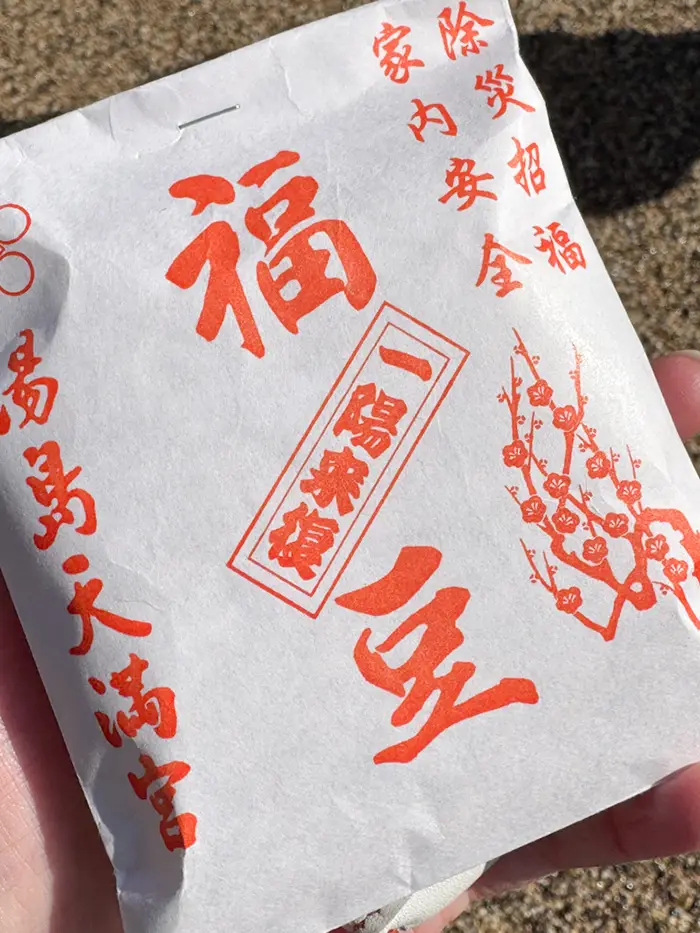 除災招福
家内安全
福
一陽来復
豆
湯島天満宮